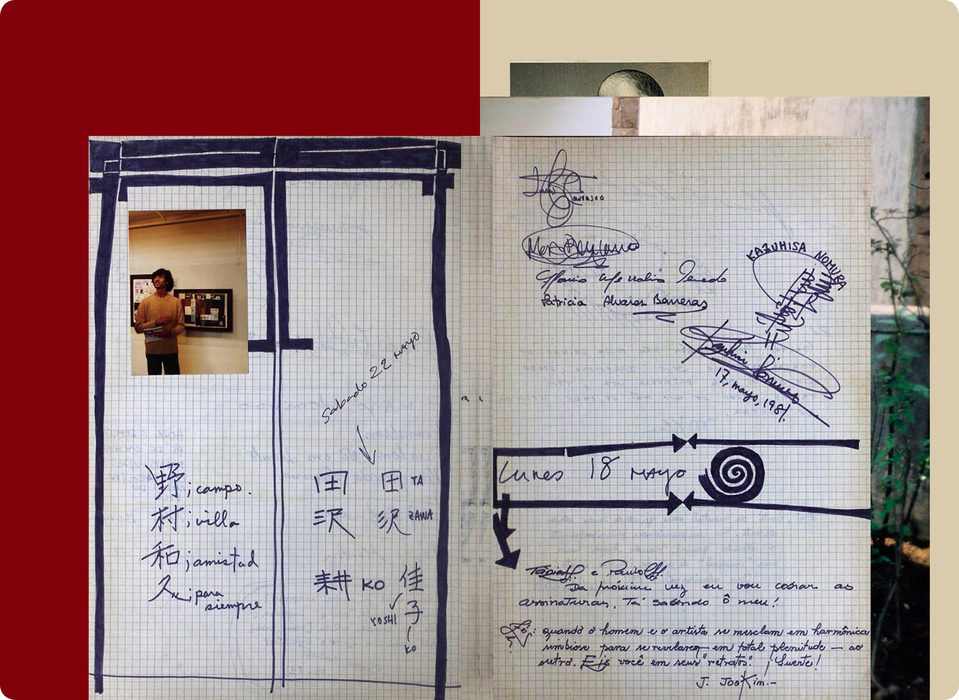 Sabado 22 mayo
野; campo.
村; villa
和; amistad
久; para
siempre
田 田 TA
沢 沢 ZAWA
耕 KO 佳
YOSHI 子
KO
Patricia Alvarez Barreras
KAZUHISA NOMURA
17, mayo, 1981.
Lunes 18 mayo
e
Da próxima vez eu vou cobrar as
assinaturas, Tá sabendo ô meu!
quando o homem e o artista se mesclam em harmônica
simbiose para se revelarem em total plenitude — ao
outro. Eis você em seus "retratos". ¡Suerte!
J. Joakim.-